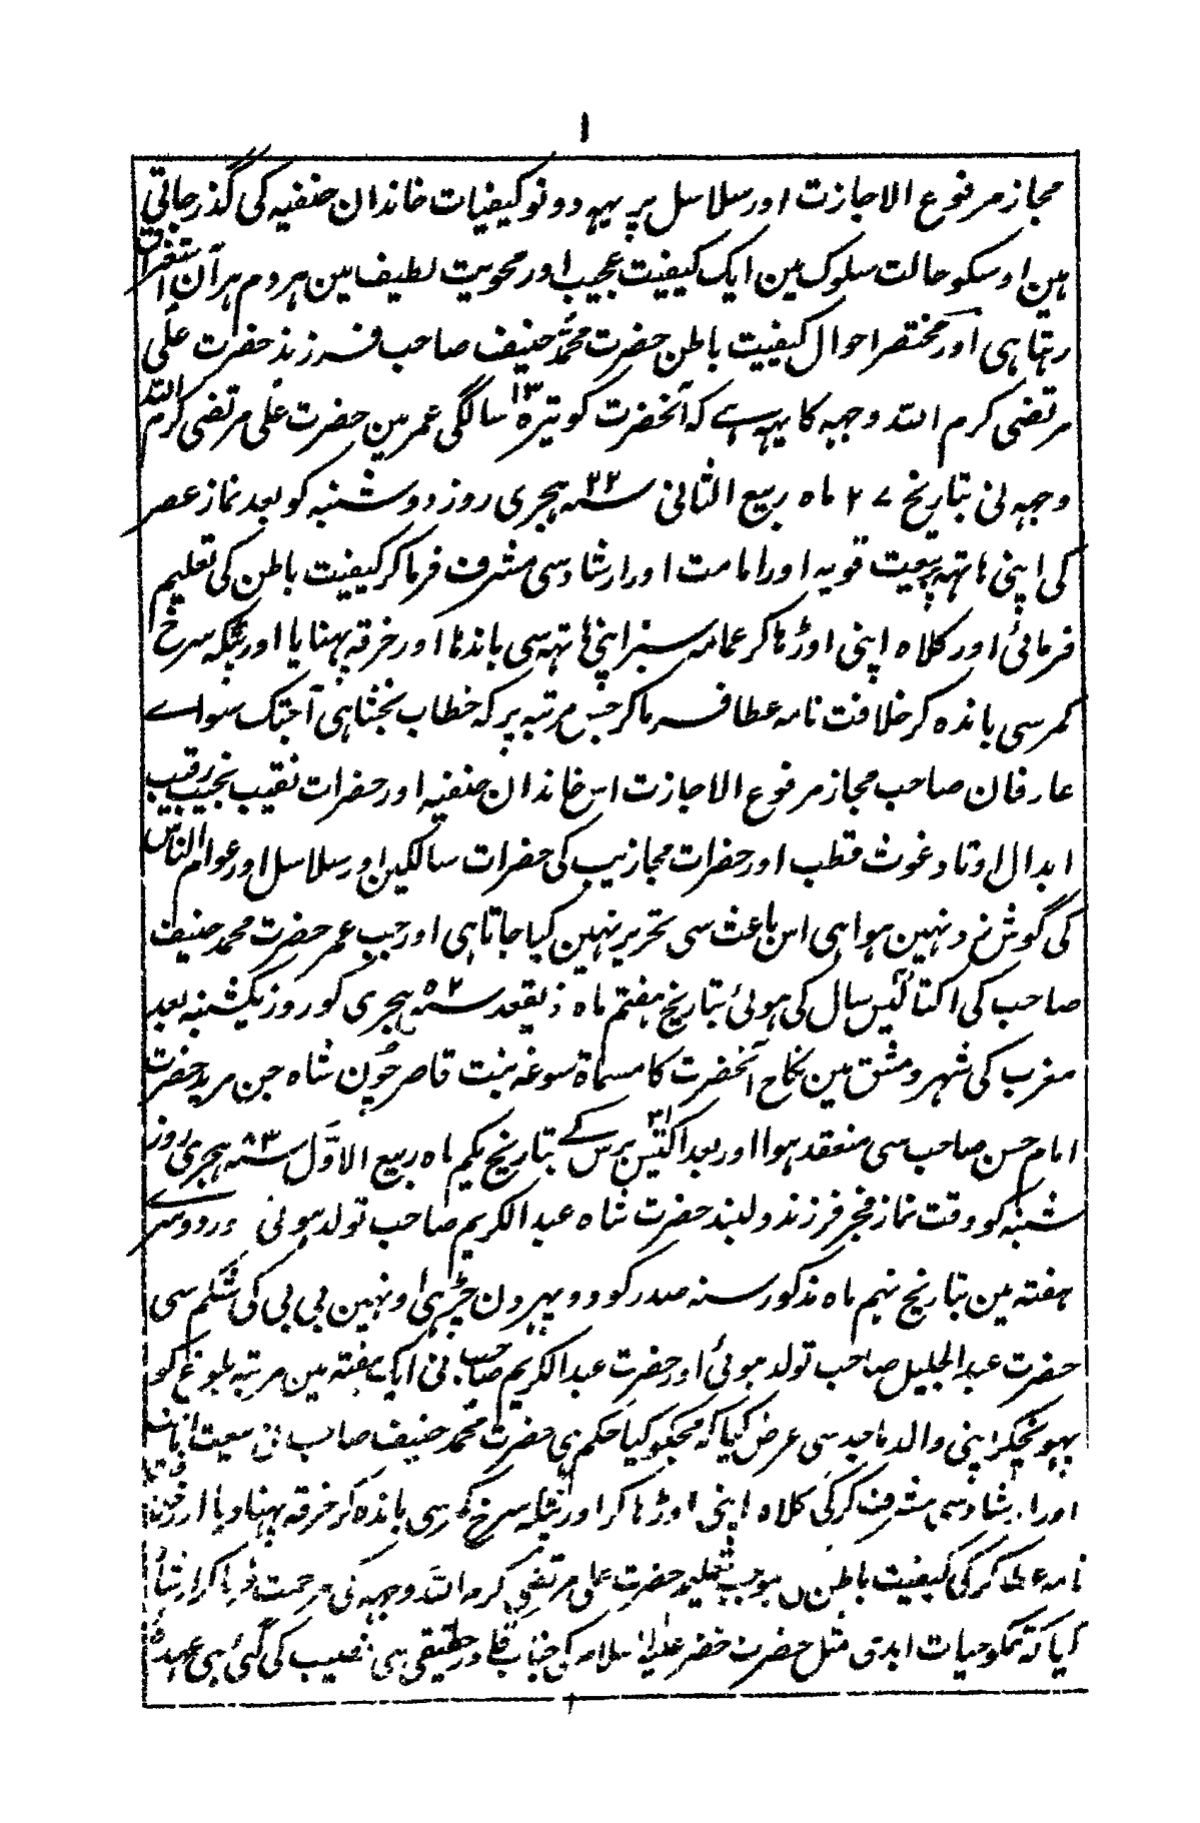 ١
مجاز مرفوع الاجازت اور سلاسل پر یہہ دونو کیفیات خاندان حنفیہ کی گذر جاتی
ہین اوسکو حالت سلوک مین ایک کیفیت عجیب اور محویت لطیف مین ہر دم ہر آن استغراق
رہتا ہی اور مختصر احوال کیفیت باطن حضرت محمد حنیف صاحب فرزند حضرت علی
مرتضی کرم اللہ وجہہ کا یہہ ہے کہ آنحضرت کو تیرہ ١٣ سالگی عمر مین حضرت علی مرتضی کرم اللہ
وجہہ نی بتاریخ ٢٧ ماہ ربیع الثانی سنہ ٢٢ ہجری روز دوشنبہ کو بعد نماز عصر
کی اپنی ہاتہہ پر بیعت قویہ اور امامت اور ارشاد سی مشرف فرما کر کیفیت باطن کی تعلیم
فرمائی اور کلاہ اپنی اوڑہا کر عمامہ سبز اپنی ہاتہہ سی باندہا اور خرقہ پہنایا اور پٹکہ سرخ
کمر سی باندہ کر خلافت نامہ عطا فرما کر جس مرتبہ پر کہ خطاب بخشا ہی آجتک سواے
عارفان صاحب مجاز مرفوع الاجازت اس خاندان حنفیہ اور حضرات نقیب نجیب رقیب
ابدال اوتاد غوث قطب اور حضرات مجازیب کی حضرات سالکین اور سلاسل اور عوام الناس
کی گوش زد نہین ہوا ہی اس باعث سی تحریر نہین کیا جاتا ہی اور جب عمر حضرت محمد حنیف
صاحب کی اکتالیس سال کی ہوئی بتاریخ ہفتم ماہ ذیقعد سنہ ٥٢ ہجری کو روز یکشنبہ بعد
مغرب کی شہر دمشق مین نکاح آنحضرت کا مسماۃ سوغہ بنت قاصر جون شاہ جن مرید حضرت
امام حسن صاحب سی منعقد ہوا اور بعد اکتیس ٣١ برس کے بتاریخ یکم ماہ ربیع الاول سنہ ٨٣ ہجری روز
شنبہ کو وقت نماز فجر فرزند دلبند حضرت شاہ عبدالکریم صاحب تولد ہوئی اور دوسرے
ہفتہ مین بتاریخ نہم ماہ مذکور سنہ صدر کو دوپہر دن چڑہی اونہین بی بی کی شکم سی
حضرت عبدالجلیل صاحب تولد ہوئی اور حضرت عبدالکریم صاحب نی ایک ہفتہ مین مرتبہ بلوغ کو
پہونچکر اپنی والد ماجد سی عرض کیا کہ مجہکو کیا حکم ہی حضرت محمد حنیف صاحب نی بیعت
اور ارشاد سی مشرف کر کی کلاہ اپنی اوڑہا کر اور پٹکہ سرخ کمر سی باندہ کر خرقہ پہنا دیا اور
نامہ عطا کر کی کیفیت باطن بموجب تعلیم حضرت علی مرتضی کرم اللہ وجہہ کی مرحمت فرما کر ارشاد
کیا کہ تمکو حیات ابدی مثل حضرت خضر علیہ السلام کی جناب قادر حقیقی سی نصیب کی گئی ہی